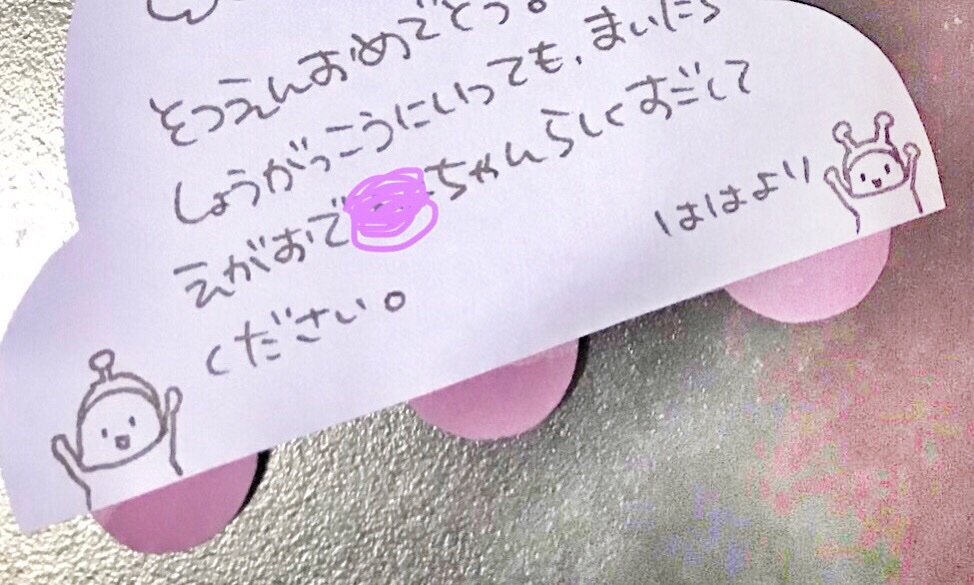 そつえんおめでとう。
しょうがっこうにいっても、まいにち
えがおで ちゃんらしくすごして
ください。
ははより